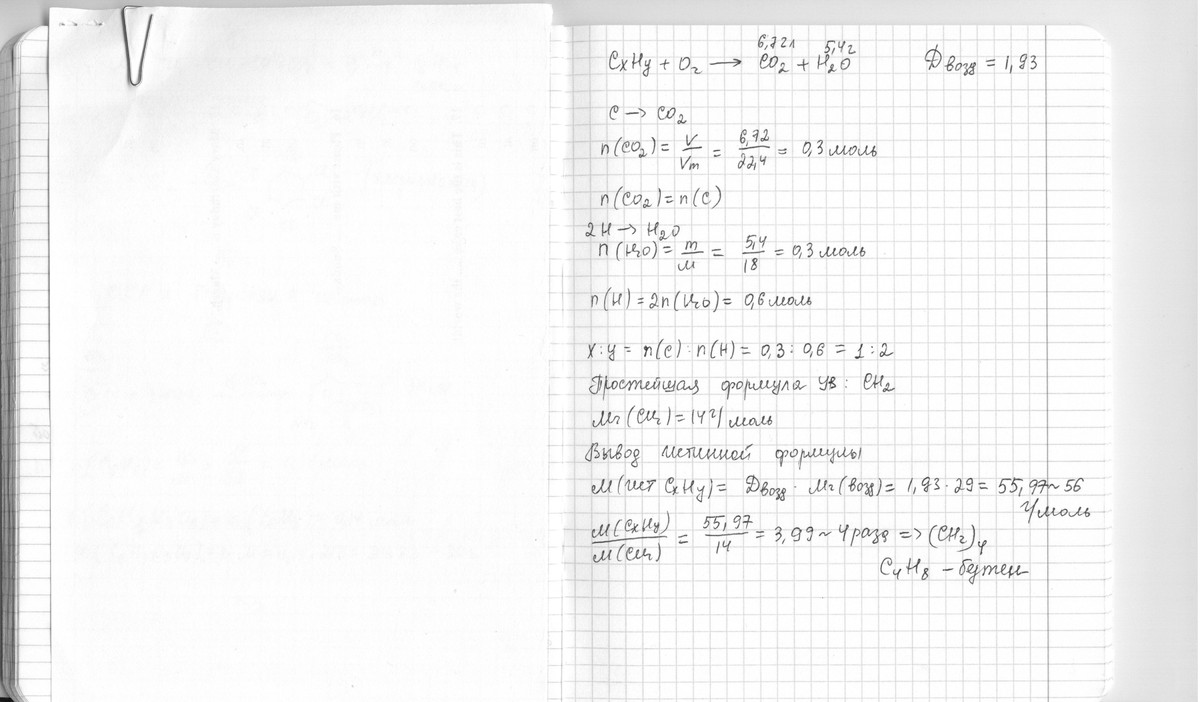 6,72л 5,4г
CxHy + O2 → CO2 + H2O Dвозд = 1,93
C → CO2
n(CO2) = V/Vm = 6,72/22,4 = 0,3 моль
n(CO2) = n(C)
2H → H2O
n(H2O) = m/M = 5,4/18 = 0,3 моль
n(H) = 2n(H2O) = 0,6 моль
x:y = n(C) : n(H) = 0,3 : 0,6 = 1 : 2
Простейшая формула ув : CH2
Mr(CH2) = 14 г/моль
Вывод истинной формулы
M(ист CxHy) = Dвозд · Mr(возд) = 1,93 · 29 = 55,97 ~ 56
г/моль
M(CxHy)/M(CH2) = 55,97/14 = 3,99 ~ 4 раза => (CH2)4
C4H8 – бутен